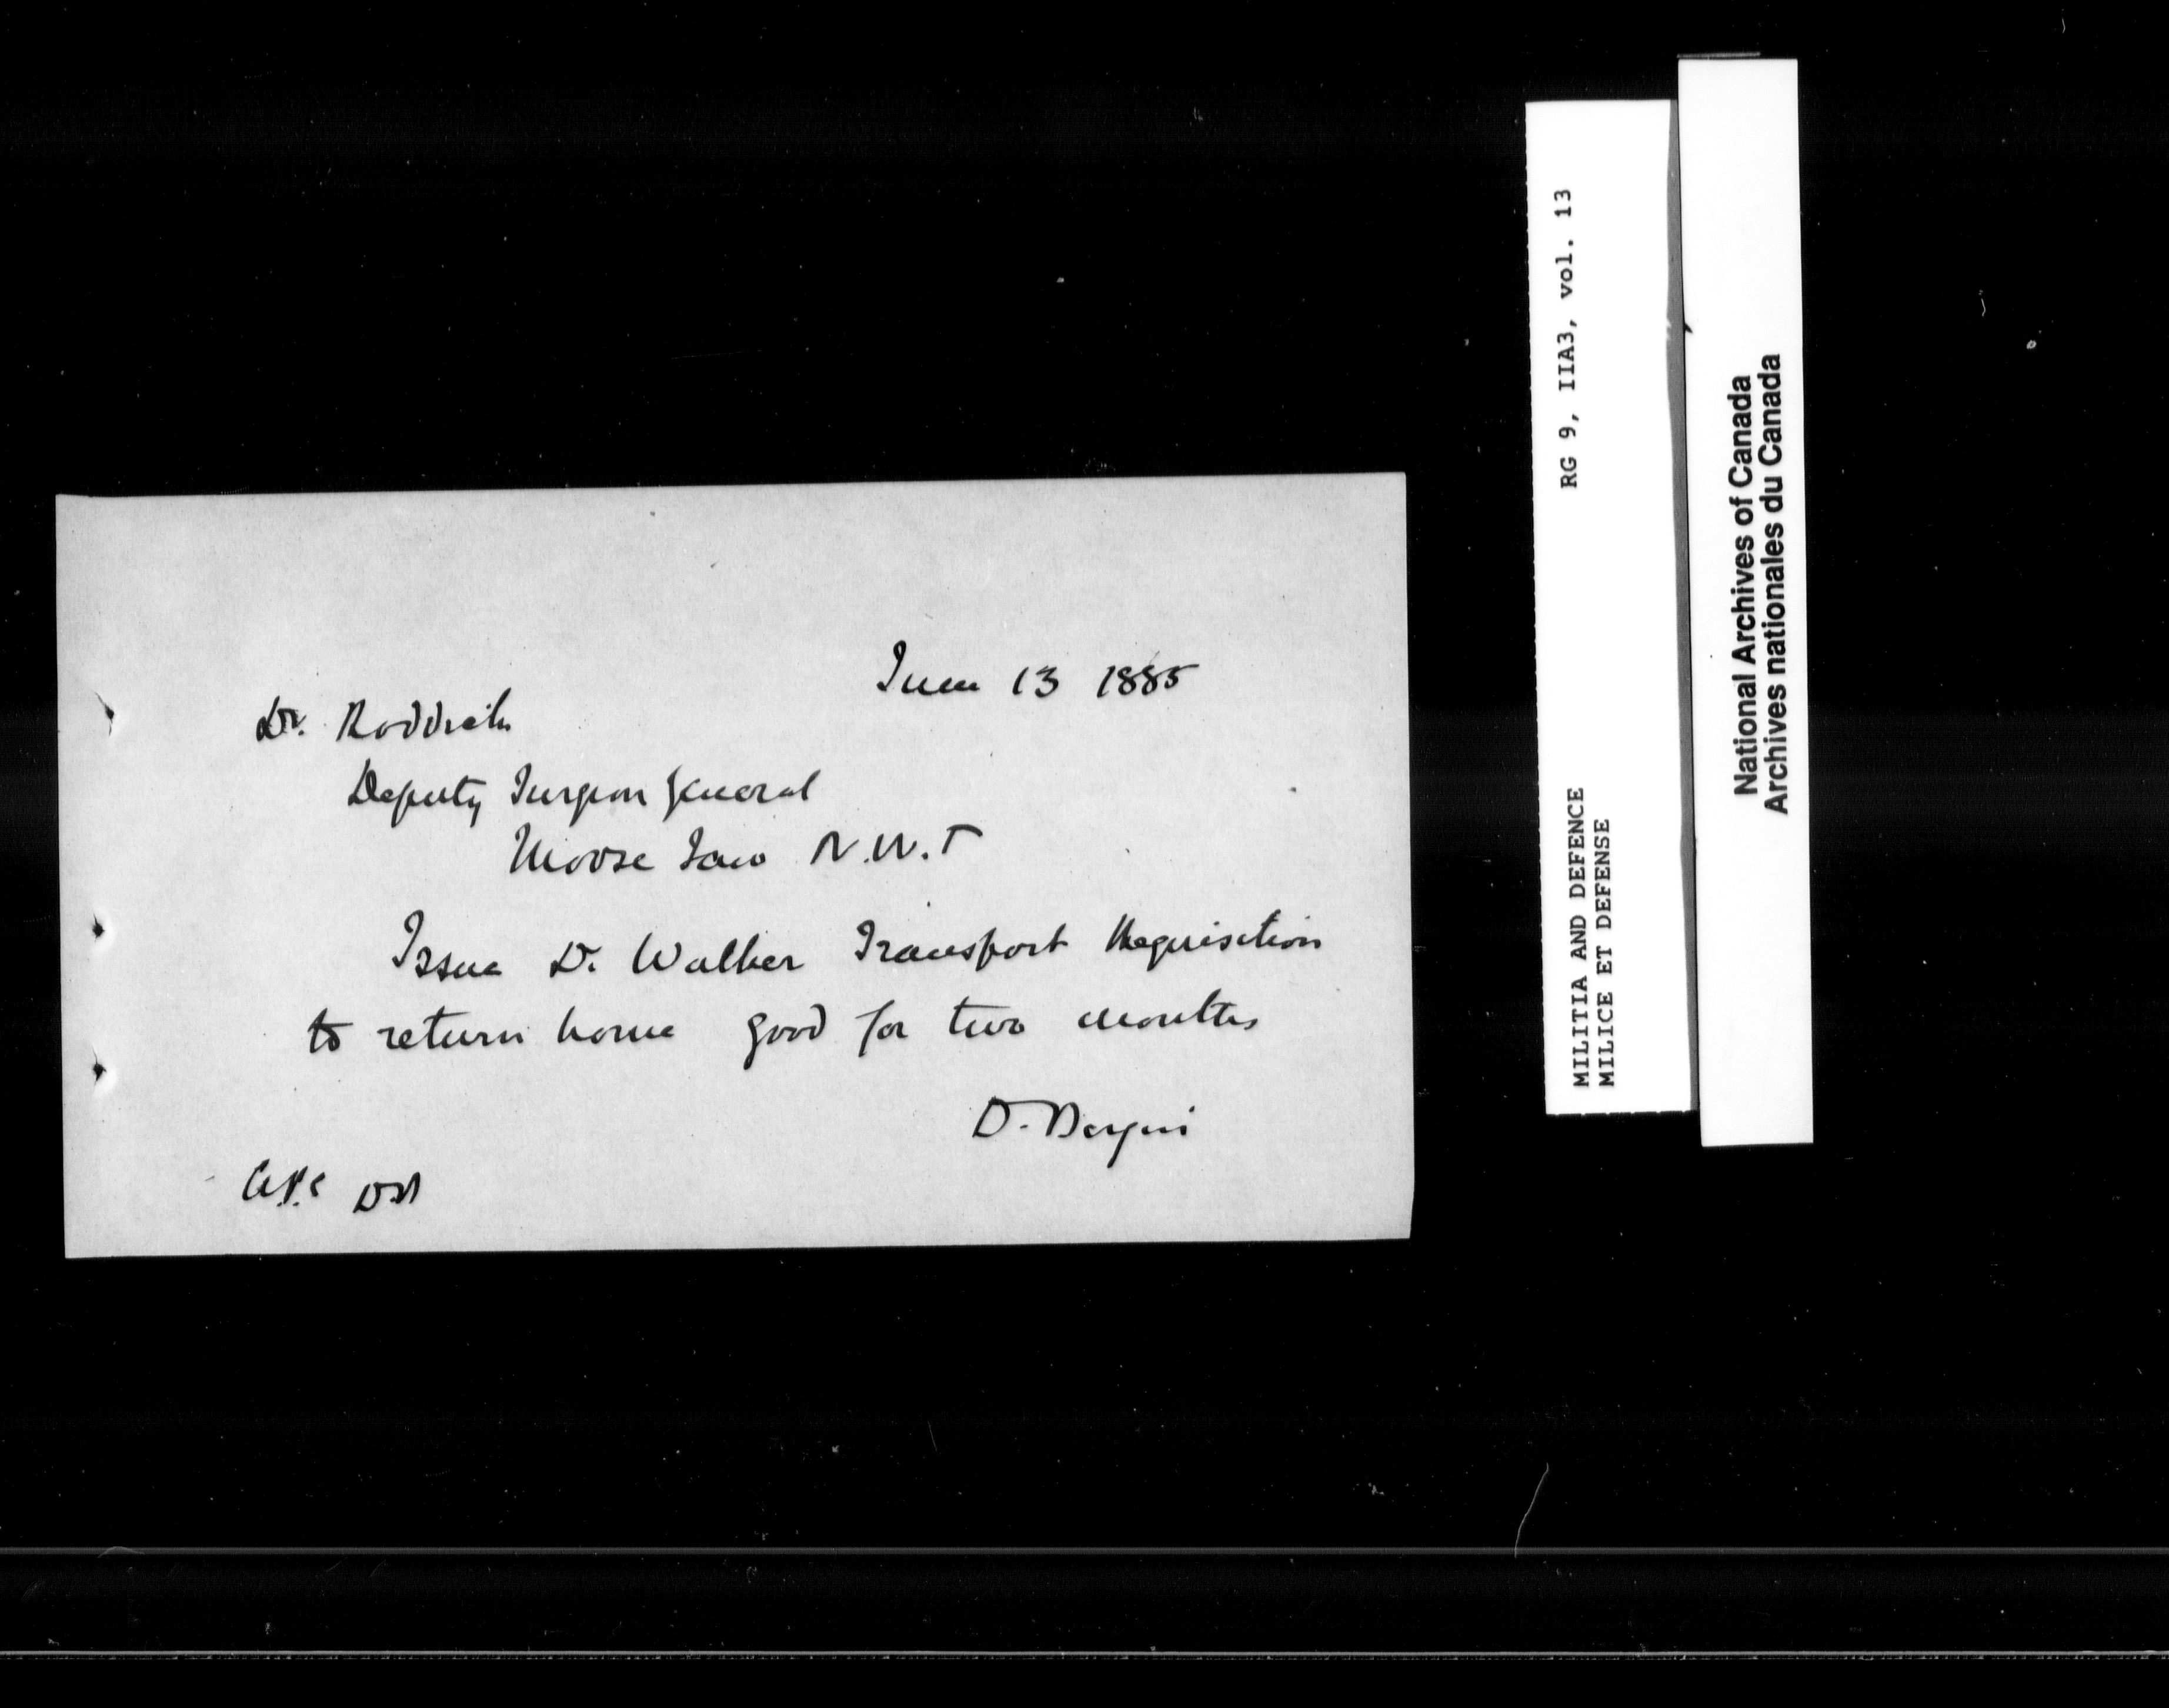 June 13 1885
Dr. Roddick
Deputy Surgeon General
Moose Jaw N.W.T
Issue Dr. Walker Transport Requisition
to return home good for two months
D. Bergin
DM
RG 9, IIA3, vol. 13
MILITIA AND DEFENCE
MILICE ET DEFENSE
National Archives of Canada
Archives nationales du Canada